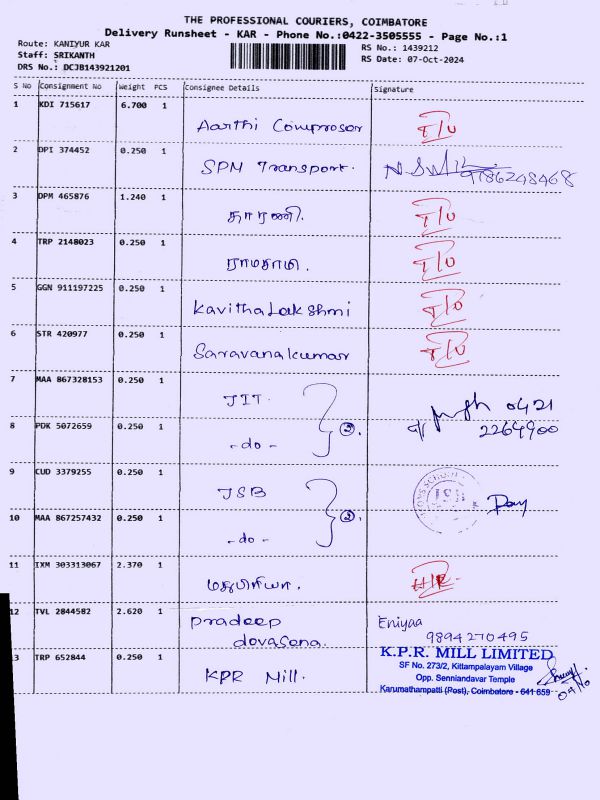 THE PROFESSIONAL COURIERS, COIMBATORE
Delivery Runsheet - KAR - Phone No.:0422-3505555 - Page No.:1
Route: KANIYUR KAR
Staff: SRIKANTH
DRS No.: DCJB143921201
RS No.: 1439212
RS Date: 07-Oct-2024
S No Consignment No Weight PCS Consignee Details Signature
1 KDI 715617 6.700 1 Aarthi Comprosor T/U
2 DPI 374452 0.250 1 SPM Transport. 9786248468
3 DPM 465876 1.240 1 தாரணி. T/U
4 TRP 2148023 0.250 1 T/U
5 GGN 911197225 0.250 1 Kavitha Lakshmi T/U
6 STR 420977 0.250 1 Saravanakumar T/U
7 MAA 867328153 0.250 1 JIT. 0421
8 PDK 5072659 0.250 1 -do- 2 2264900
9 CUD 3379255 0.250 1 JSB
10 MAA 867257432 0.250 1 -do- 2
11 IXM 303313067 2.370 1 மதுபிரியா.
12 TVL 2844582 2.620 1 Pradeep dovasena. Eniyaa
9894270495
13 TRP 652844 0.250 1 KPR Mill.
K.P.R. MILL LIMITED
SF No. 273/2, Kittampalayam Village
Opp. Senniandavar Temple
Karumathampatti (Post), Coimbatore - 641 659